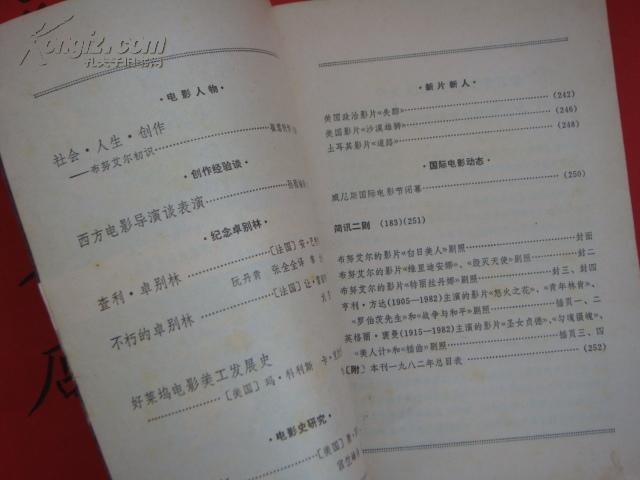 Kongfz.com
孔夫子旧书网
·电影人物
社会·人生·创作
——布努艾尔初识
·创作经验谈·
西方电影导演谈表演
·纪念卓别林·
查利·卓别林
〔法国〕安·
阮丹青 张全全译
不朽的卓别林
〔法国〕让·
好莱坞电影美工发展史
〔美国〕玛·科利斯 卡·
·电影史研究·
〔美国〕
·新片新人·
美国政治影片《失踪》 (242)
美国影片《沙漠雄狮》 (246)
土耳其影片《道路》 (248)
·国际电影动态·
威尼斯国际电影节闭幕 (250)
简讯二则 (183)(251)
布努艾尔的影片《白日美人》剧照 封面
布努艾尔的影片《维里迪安娜》、《毁灭天使》剧照 封二
布努艾尔的影片《特丽丝丹娜》剧照 封三、封四
亨利·方达(1905—1982)主演的影片《怒火之花》、《青年林肯》、
《罗伯茨先生》和《战争与和平》剧照 插页一、二
英格丽·褒曼(1915—1982)主演的影片《圣女贞德》、《勾魂慑魄》、
《美人计》和《插曲》剧照 插页三、四
〔附〕本刊一九八二年总目表 (252)
店